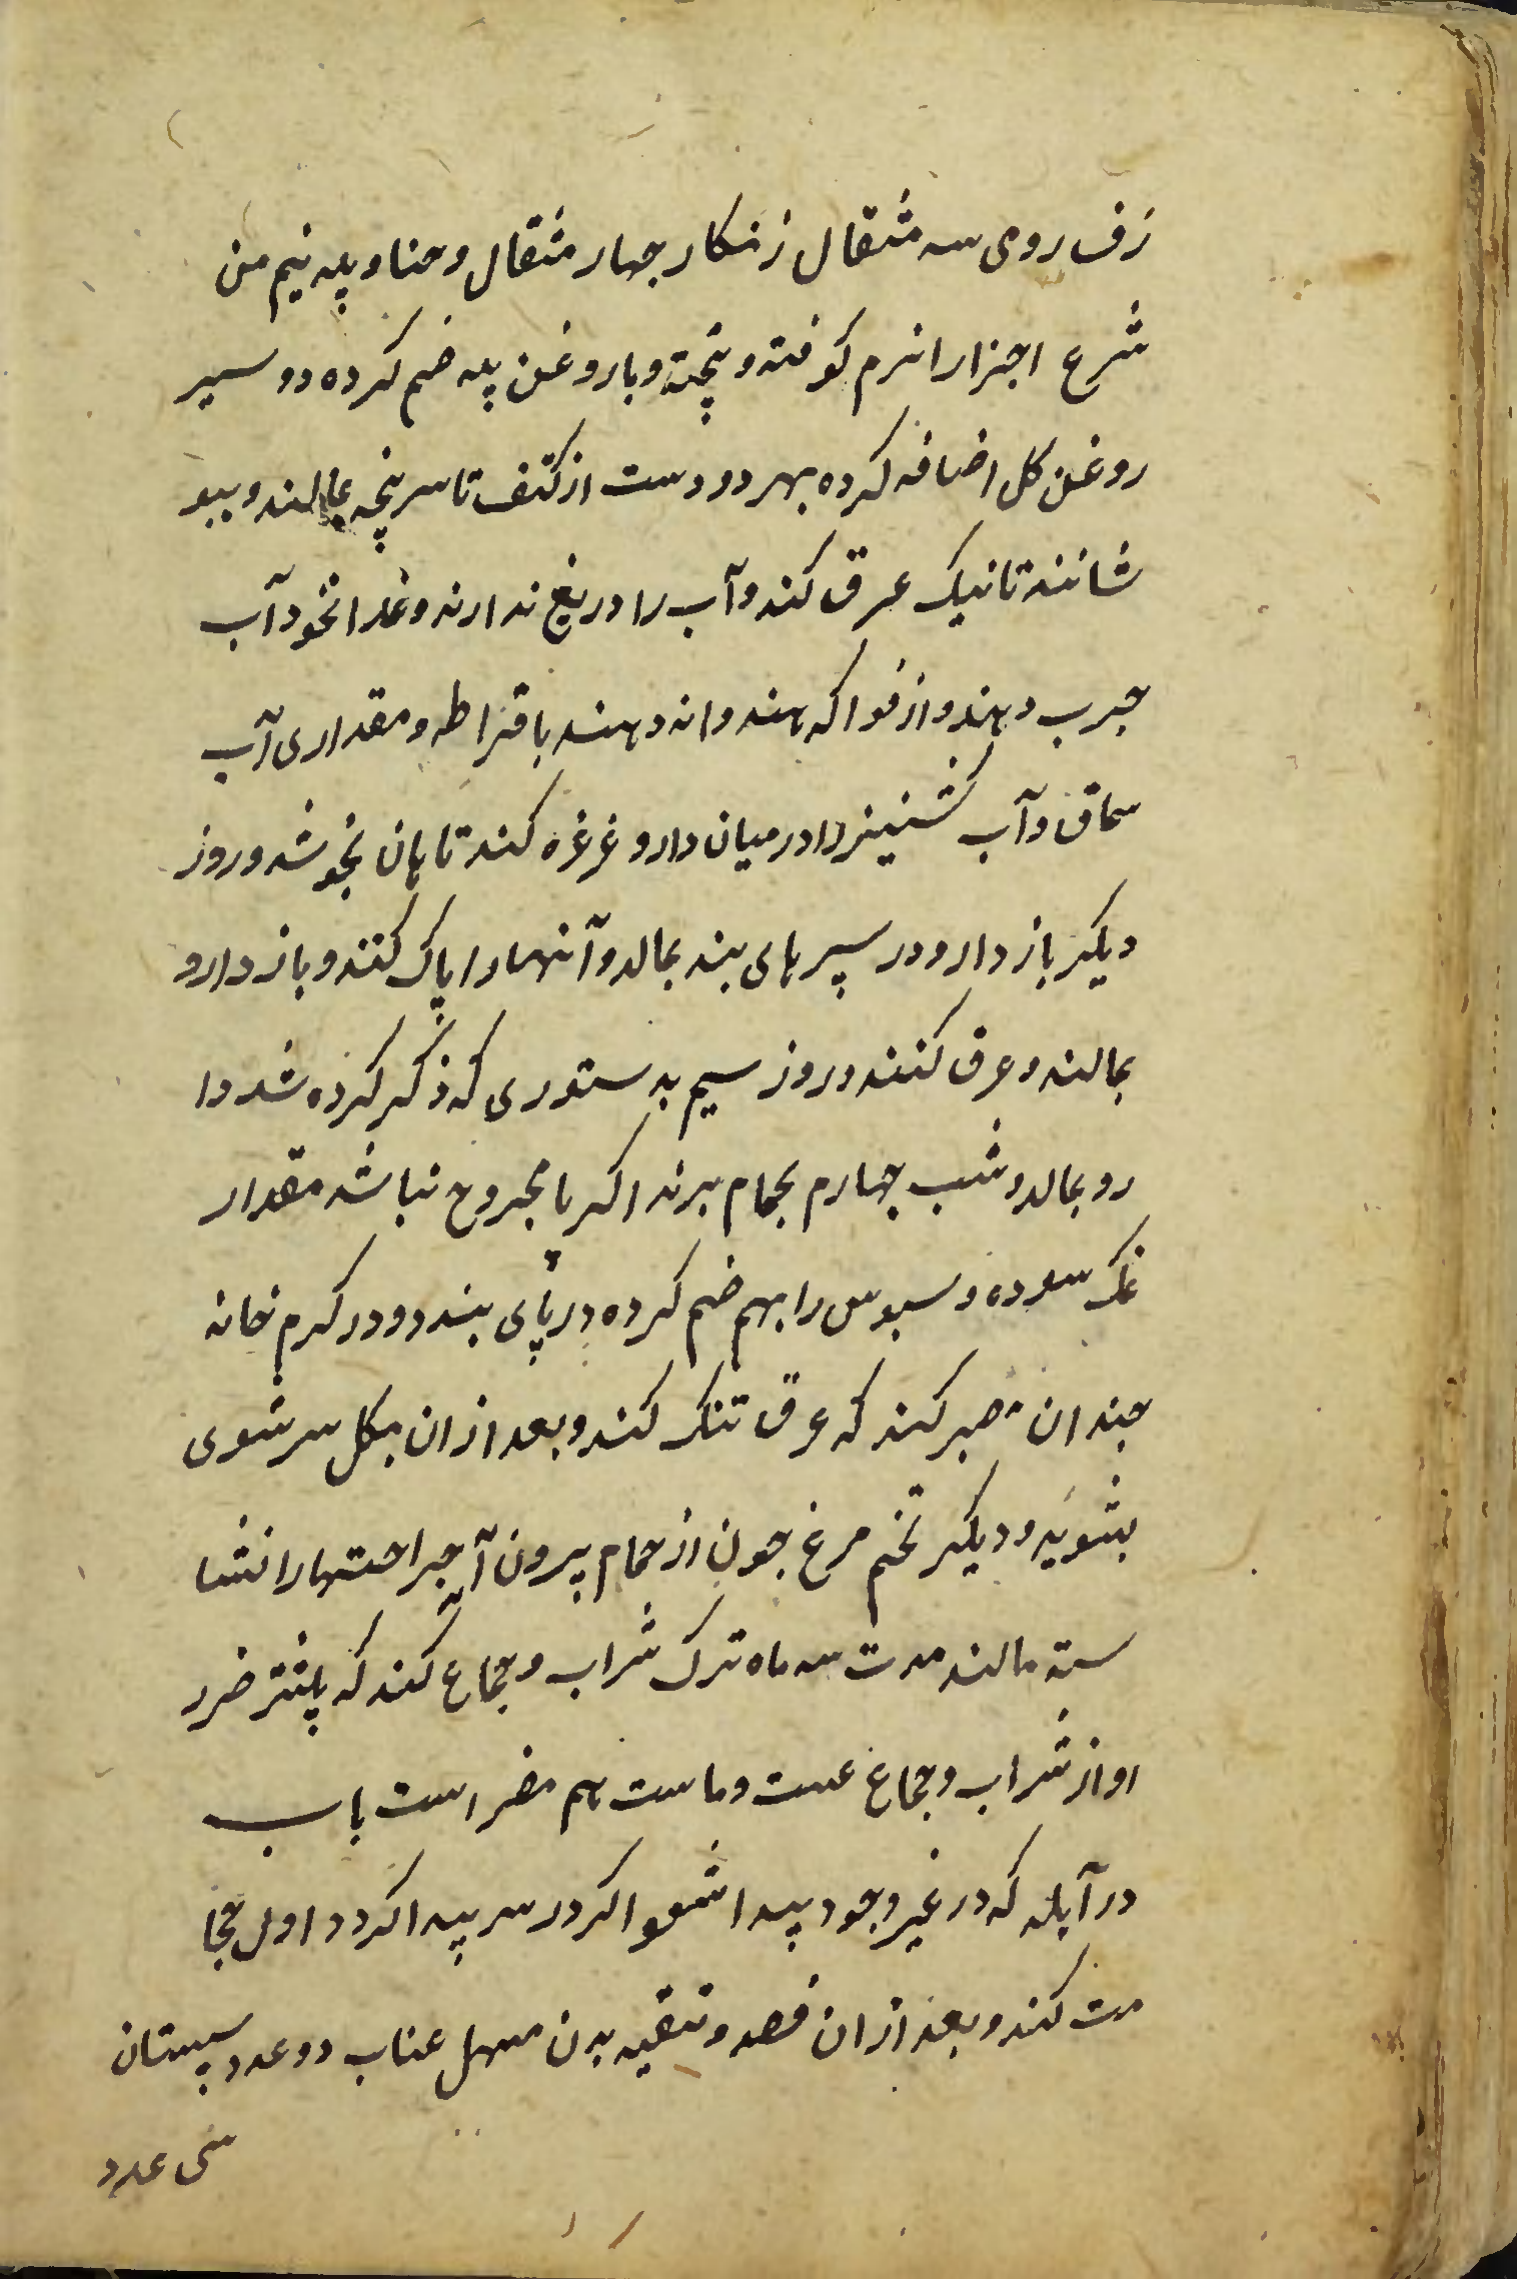 زفت رومی سه مثقال زنکار جهار مثقال و حنا و پیه نیم من
شرع اجزا را نرم کوفته و پخته و با روغن پیه ضم کرده دو سیر
روغن کل اضافه کرده بهر دو دست از کتف تا سر پنجه بمالند و بپو
شانند تا نیک عرق کند و آب را دریغ ندارند و غذا نخود آب
جرب دهند و از فواکه هندوانه دهند با قراطه و مقداری آب
سماق و آب کشنیز را در میان دارو غرغره کند تا دهان نجوشد و روز
دیکر باز دارو در سپرهای بند بمالد و آنها را پاک کنند و باز دارو
بمالند و عرق کنند و روز سیم بدستوری که ذکر کرده شد دا
رو بمالد و شب جهارم بحمام برند اکر پا مجروح نباشد مقدار
نمک سوده و سبوس را بهم ضم کرده در پای بندد و در کرم خانه
جندان صبر کند که عرق تنک کند و بعد از ان بکل سرشوی
بشوید و دیکر تخم مرغ جون از حمام بیرون آید جراحتها را نشا
سته مالند مدت سه ماه ترک شراب و جماع کند که پیشتر ضرر
او از شراب و جماع عست و ماست هم مضر است باب
در آبله که در غیر وجود پیدا شود اکر در سر پیدا کردد اول حجا
مت کند و بعد از ان فصد و تنقیه بدن مسهل عناب دو عدد سپستان
سی عدد